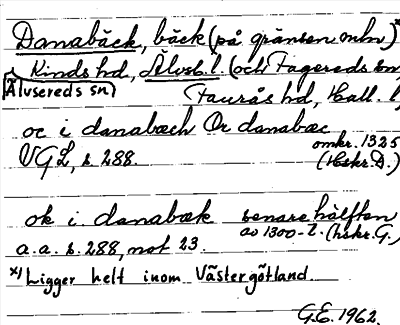 Danabäck, bäck (på gränsen mln)*)
i Kinds hd, Älvsb. l. (och Fagereds sn,
Älvsereds sn)
Faurås hd, Hall. l.)
oc i danabæch Or danabæc
omkr. 1325
VGL, s. 288. (Hskr. A.)
ok i danabæk senare hälften
av 1300-t. (hskr. G.)
a.a. s. 288, not 23.
*) Ligger helt inom Västergötland.
G.E. 1962.